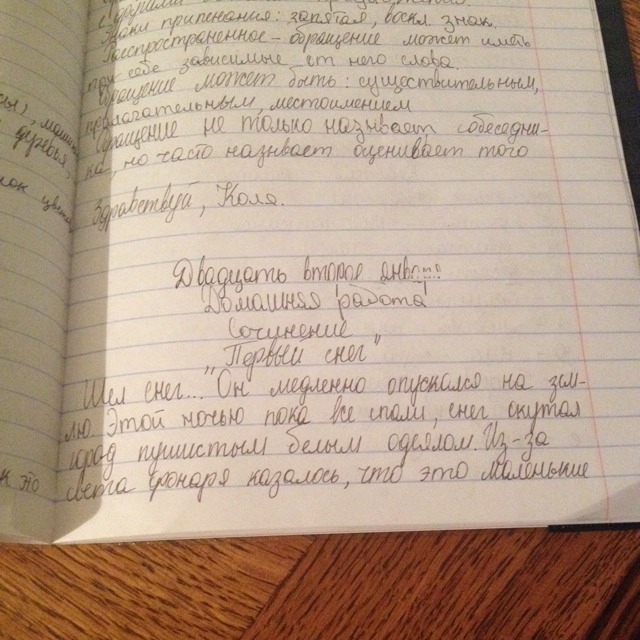 с другими
Знаки припенания: запятая, воскл знак.
Распространенное - обращение может иметь
при себе зависимые от него слова.
Обращение может быть: существительным,
прилагательным, местоимением
Обращение не только называет собеседни-
ка, но часто называет оценивает того
Здравствуй, Коля.
Двадцать второе января
Домашняя работа
Сочинение
„Первый снег"
Шел снег... Он медленно опускался на зем-
лю этой ночью пока все спали, снег окутал
город пушистым белым одеялом. Из-за
света фонаря казалось, что это маленькие